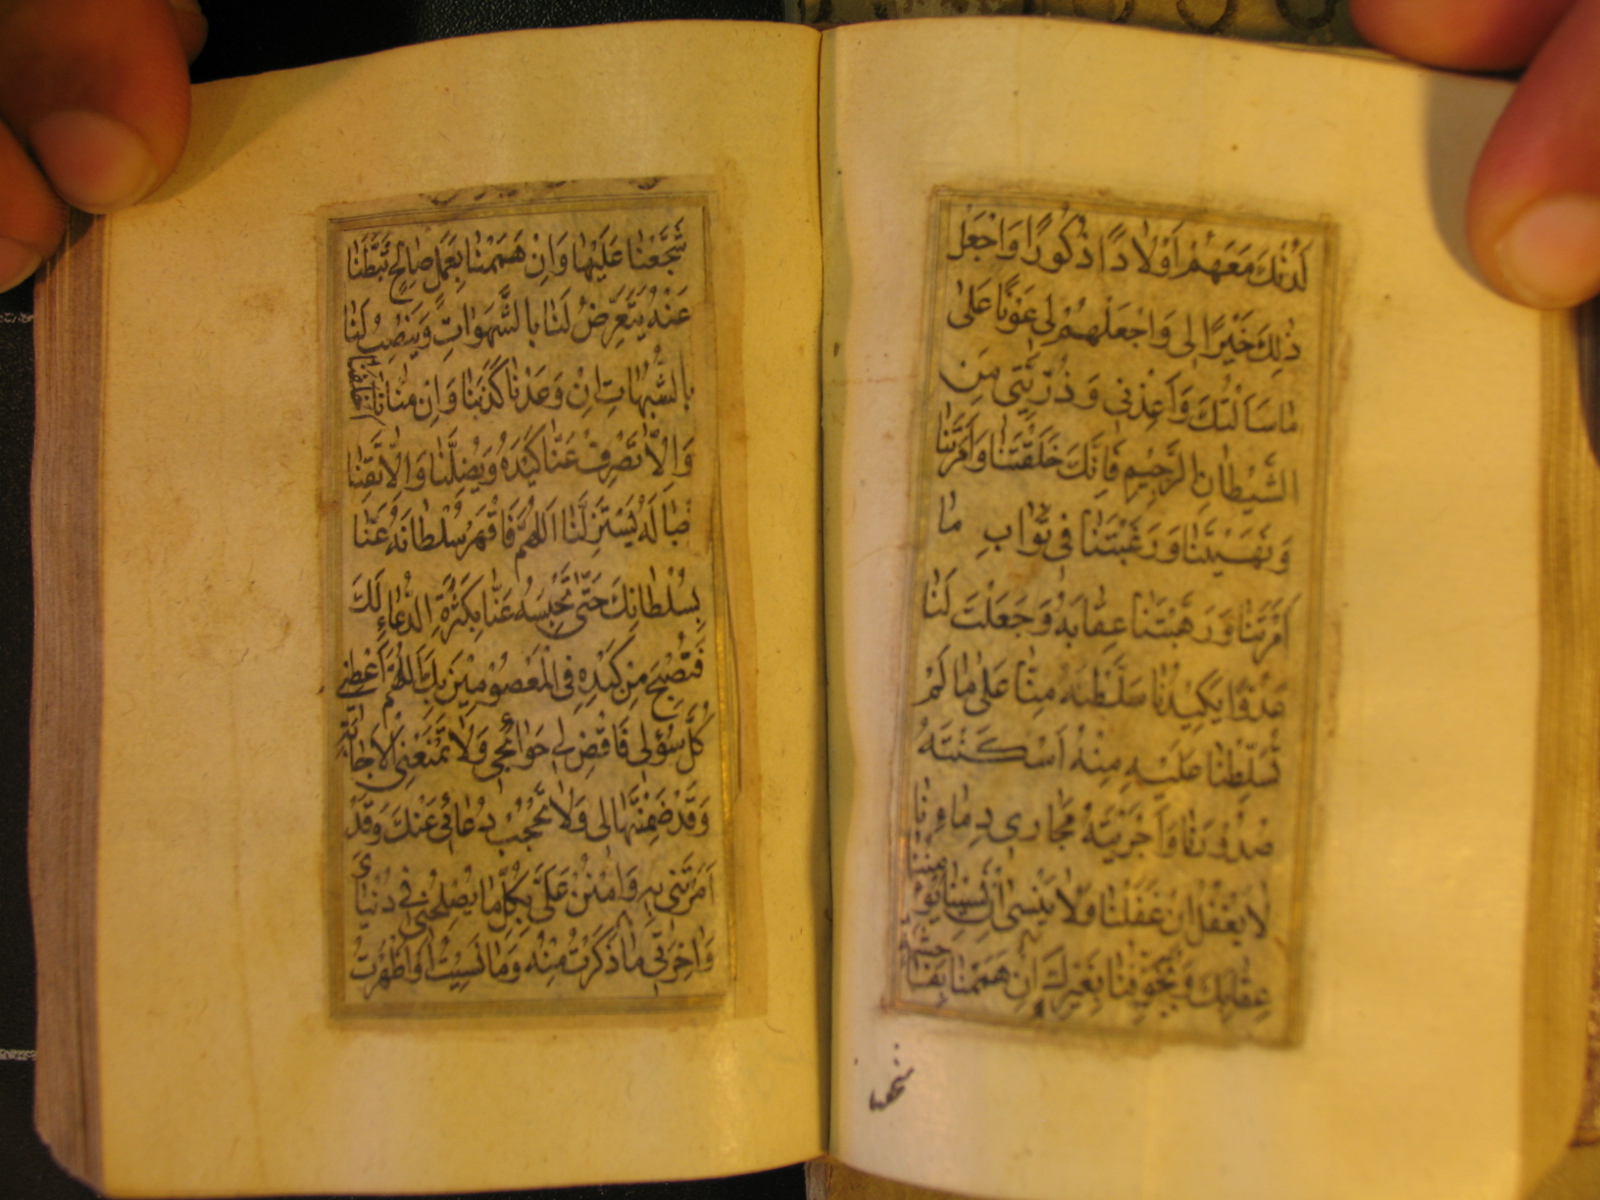 لَدُنْكَ مَعَهُمْ اَوْلَادًا ذُكُورًا وَاجْعَلْ
ذٰلِكَ خَيْرًا لِى وَاجْعَلْهُمْ لِى عَوْنًا عَلٰى
مَا سَاَلْتُكَ وَاَعِذْنِى وَذُرِّيَّتِى مِنَ
الشَّيْطَانِ الرَّجِيمِ فَاِنَّكَ خَلَقْتَنَا وَاَمَرْتَنَا
وَنَهَيْتَنَا وَرَغَّبْتَنَا فِى ثَوَابِ مَا
اَمَرْتَنَا وَرَهَّبْتَنَا عِقَابَهُ وَجَعَلْتَ لَنَا
عَدُوًّا يَكِيدُنَا سَلَّطْتَهُ مِنَّا عَلٰى مَا لَمْ
تُسَلِّطْنَا عَلَيْهِ مِنْهُ اَسْكَنْتَهُ
صُدُورَنَا وَاَجْرَيْتَهُ مَجَارِىَ دِمَائِنَا
لَا يَغْفُلُ اِنْ غَفَلْنَا وَلَا يَنْسٰى اِنْ نَسِينَا يُؤْمِنُنَا
عِقَابَكَ وَيُخَوِّفُنَا بِغَيْرِكَ اِنْ هَمَمْنَا بِفَاحِشَةٍ
شجعنا
شَجَّعَنَا عَلَيْهَا وَاِنْ هَمَمْنَا بِعَمَلٍ صَالِحٍ ثَبَّطَنَا
عَنْهُ يَتَعَرَّضُ لَنَا بِالشَّهَوَاتِ وَيَنْصِبُ لَنَا
بِالشُّبُهَاتِ اِنْ وَعَدَنَا كَذَبَنَا وَاِنْ مَنَّانَا اَخْلَفَنَا
وَاِلَّا تَصْرِفْ عَنَّا كَيْدَهُ وَيُضِلَّنَا وَاِلَّا تَقِنَا
خَبَالَهُ يَسْتَزِلَّنَا اَللّٰهُمَّ فَاقْهَرْ سُلْطَانَهُ عَنَّا
بِسُلْطَانِكَ حَتّٰى تَحْبِسَهُ عَنَّا بِكَثْرَةِ الدُّعَاءِ لَكَ
فَنُصْبِحَ مِنْ كَيْدِهِ فِى الْمَعْصُومِينَ بِكَ اَللّٰهُمَّ اَعْطِنِى
كُلَّ سُؤْلِى فَاقْضِ لِى حَوَائِجِى وَلَا تَمْنَعْنِى الْاِجَابَةَ
وَقَدْ ضَمِنْتَهَا لِى وَلَا تَحْجُبْ دُعَائِى عَنْكَ وَقَدْ
اَمَرْتَنِى بِهِ وَامْنُنْ عَلَىَّ بِكُلِّ مَا يُصْلِحُنِى فِى دُنْيَاىَ
وَاٰخِرَتِى مَا ذَكَرْتُ مِنْهُ وَمَا نَسِيتُ اَوْ اَظْهَرْتُ